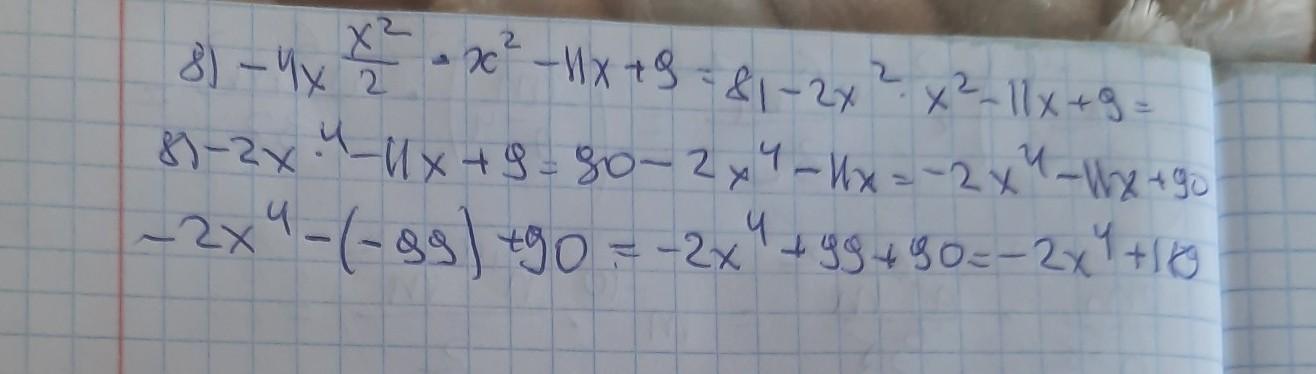 81 - 4x x²/2 · x² - 11x + 9 = 81 - 2x² · x² - 11x + 9 =
81 - 2x·⁴ - 11x + 9 = 90 - 2x⁴ - 11x = -2x⁴ - 11x + 90
-2x⁴ - (-99) + 90 = -2x⁴ + 99 + 90 = -2x⁴ + 189